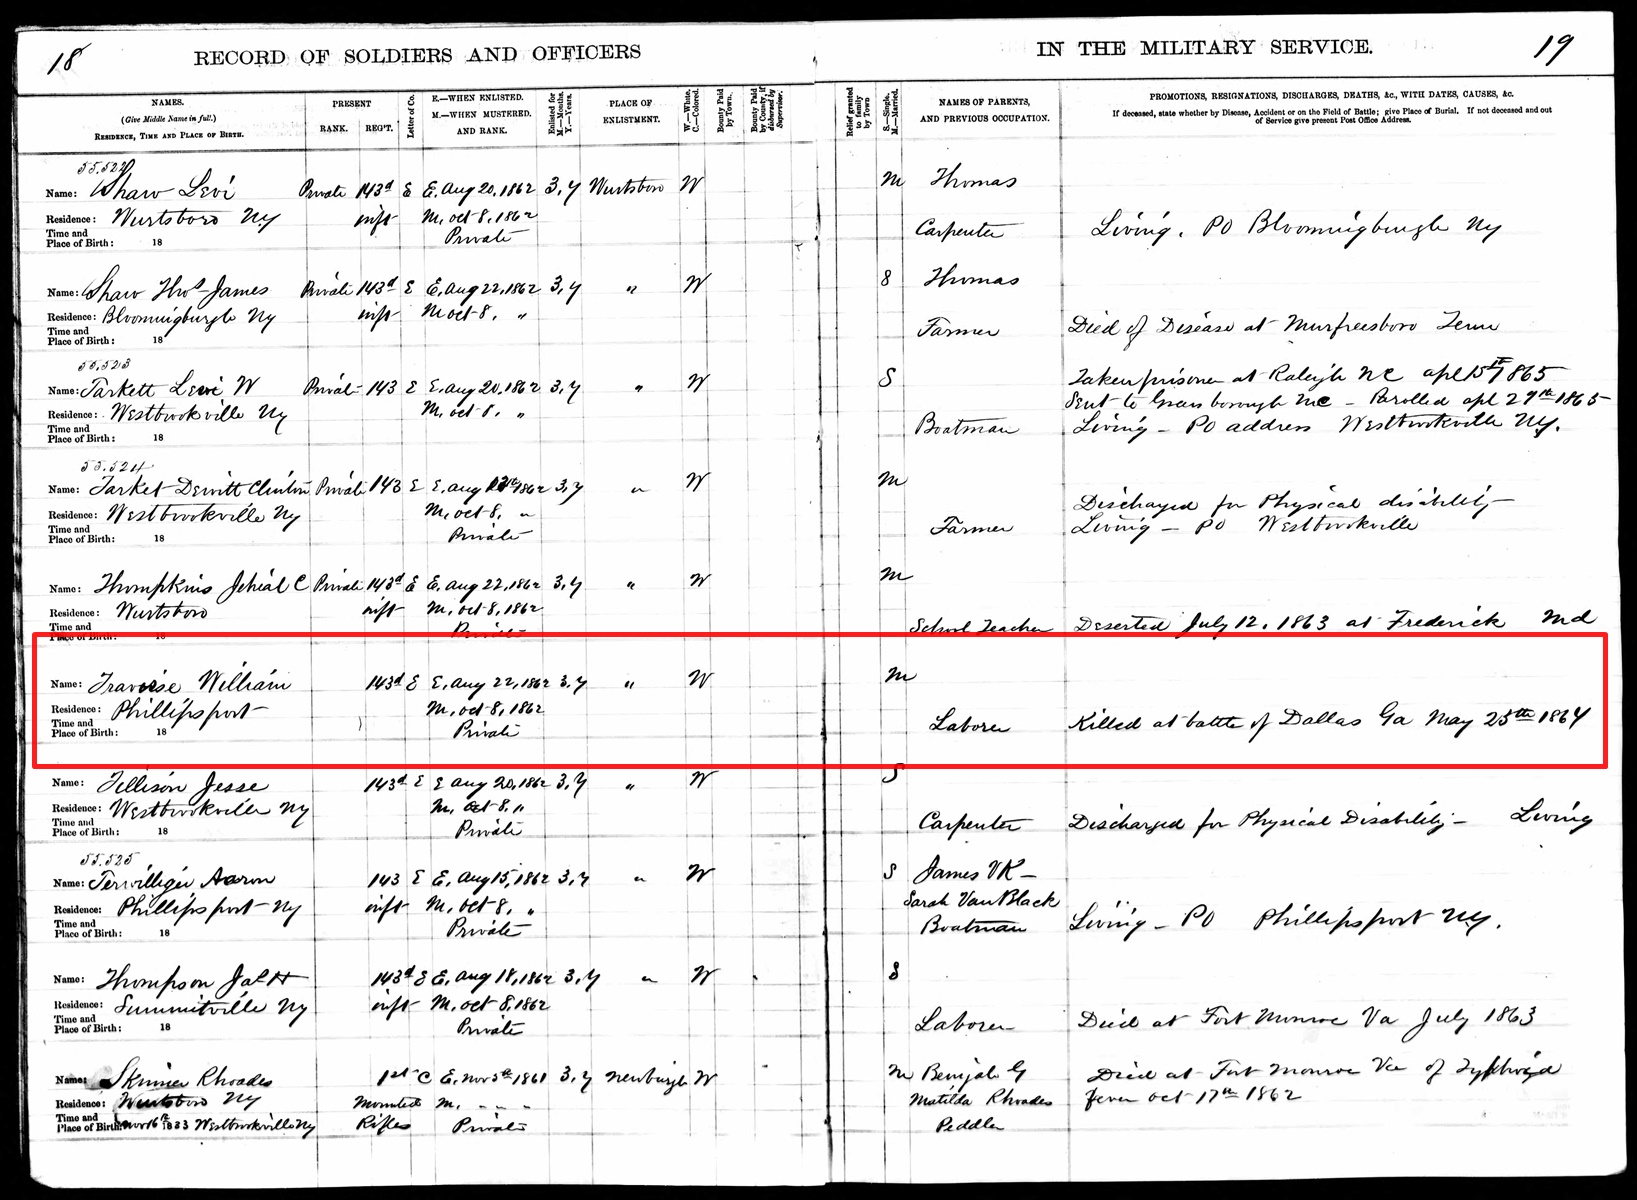 18 RECORD OF SOLDIERS AND OFFICERS IN THE MILITARY SERVICE. 19
NAMES.
(Give Middle Name in full.)
RESIDENCE, TIME AND PLACE OF BIRTH.
PRESENT
RANK. REG'T.
Letter of Co.
E.—WHEN ENLISTED.
M.—WHEN MUSTERED.
AND RANK.
Enlisted for
M.—Months.
Y.—Years.
PLACE OF
ENLISTMENT.
W.—White.
C.—Colored.
Bounty Paid
by Town.
Bounty Paid
by County, if
disbursed by
Supervisor.
Relief granted
to family
by Town
S.—Single.
M.—Married.
NAMES OF PARENTS,
AND PREVIOUS OCCUPATION.
PROMOTIONS, RESIGNATIONS, DISCHARGES, DEATHS, &c., WITH DATES, CAUSES, &c.
If deceased, state whether by Disease, Accident or on the Field of Battle; give Place of Burial. If not deceased and out
of Service give present Post Office Address.
55.522
Name: Shaw Levi Private 143d E E. Aug 20, 1862 3, y Wurtsboro W M Thomas
Residence: Wurtsboro Ny inft M. oct 8, 1862
Time and
Place of Birth: 18 Private Carpenter Living. PO Bloomingburgh Ny
Name: Shaw Thos James Private 143d E E. Aug 22, 1862 3, y " W S Thomas
Residence: Bloomingburgh Ny inft M oct 8, "
Time and
Place of Birth: 18 Farmer Died of Disease at Murfreesboro Tenn
55,523
Name: Tarkett Levi W Private 143 E E. Aug 20, 1862 3, y " W S Taken prisoner at Raleigh NC apl 15th 1865
Residence: Westbrookville Ny M. oct 8, " Sent to Greensborough NC – Parolled apl 29th 1865
Time and
Place of Birth: 18 Boatman Living – PO address Westbrookville Ny.
55.524
Name: Tarket Dewitt Clinton Private 143 E E. Aug 1862 3, y " W M
Residence: Westbrookville Ny M. oct 8, " Discharged for Physical disability
Time and
Place of Birth: 18 Private Farmer Living – PO Westbrookville
Name: Thompkins Jehial C Private 143d E E. Aug 22, 1862 3, y " W M
Residence: Wurtsboro inft M. oct 8, 1862
Time and
Place of Birth: 18 Private School Teacher Deserted July 12, 1863 at Frederick Md
Name: William 143d E E. Aug 22, 1862 3, y " W M
Residence: Phillipsport M. oct 8, 1862
Time and
Place of Birth: 18 Private Laborer Killed at battle of Dallas Ga May 25th 1864
Name: Tillison Jesse 143d E E Aug 20, 1862 3, y " W S
Residence: Westbrookville Ny M, oct 8, "
Time and
Place of Birth: 18 Private Carpenter Discharged for Physical Disability – Living
55.525
Name: Terwilliger Aaron 143 E E. Aug 15, 1862 3, y " W S James VK –
Residence: Phillipsport Ny inft M, oct 8, " Sarah VanBlack
Time and
Place of Birth: 18 Private Boatman Living – PO Phillipsport Ny.
Name: Thompson Jas H 143d E E. Aug 18, 1862 3, y " W S
Residence: Summitville Ny inft M. oct 8, 1862
Time and
Place of Birth: 18 Private Laborer Died at Fort Monroe Va July 1863
Name: Skinner Rhoades 1st C E. Nov 5th 1861 3, y Newburgh W M Benjah G Died at Fort Monroe Va of Typhoid
Residence: Wurtsboro Ny Mounted M. " " " Matilda Rhoades fever oct 17th 1862
Time and
Place of Birth Nov 16th 1833 Westbrookville Ny Rifles Private Peddler